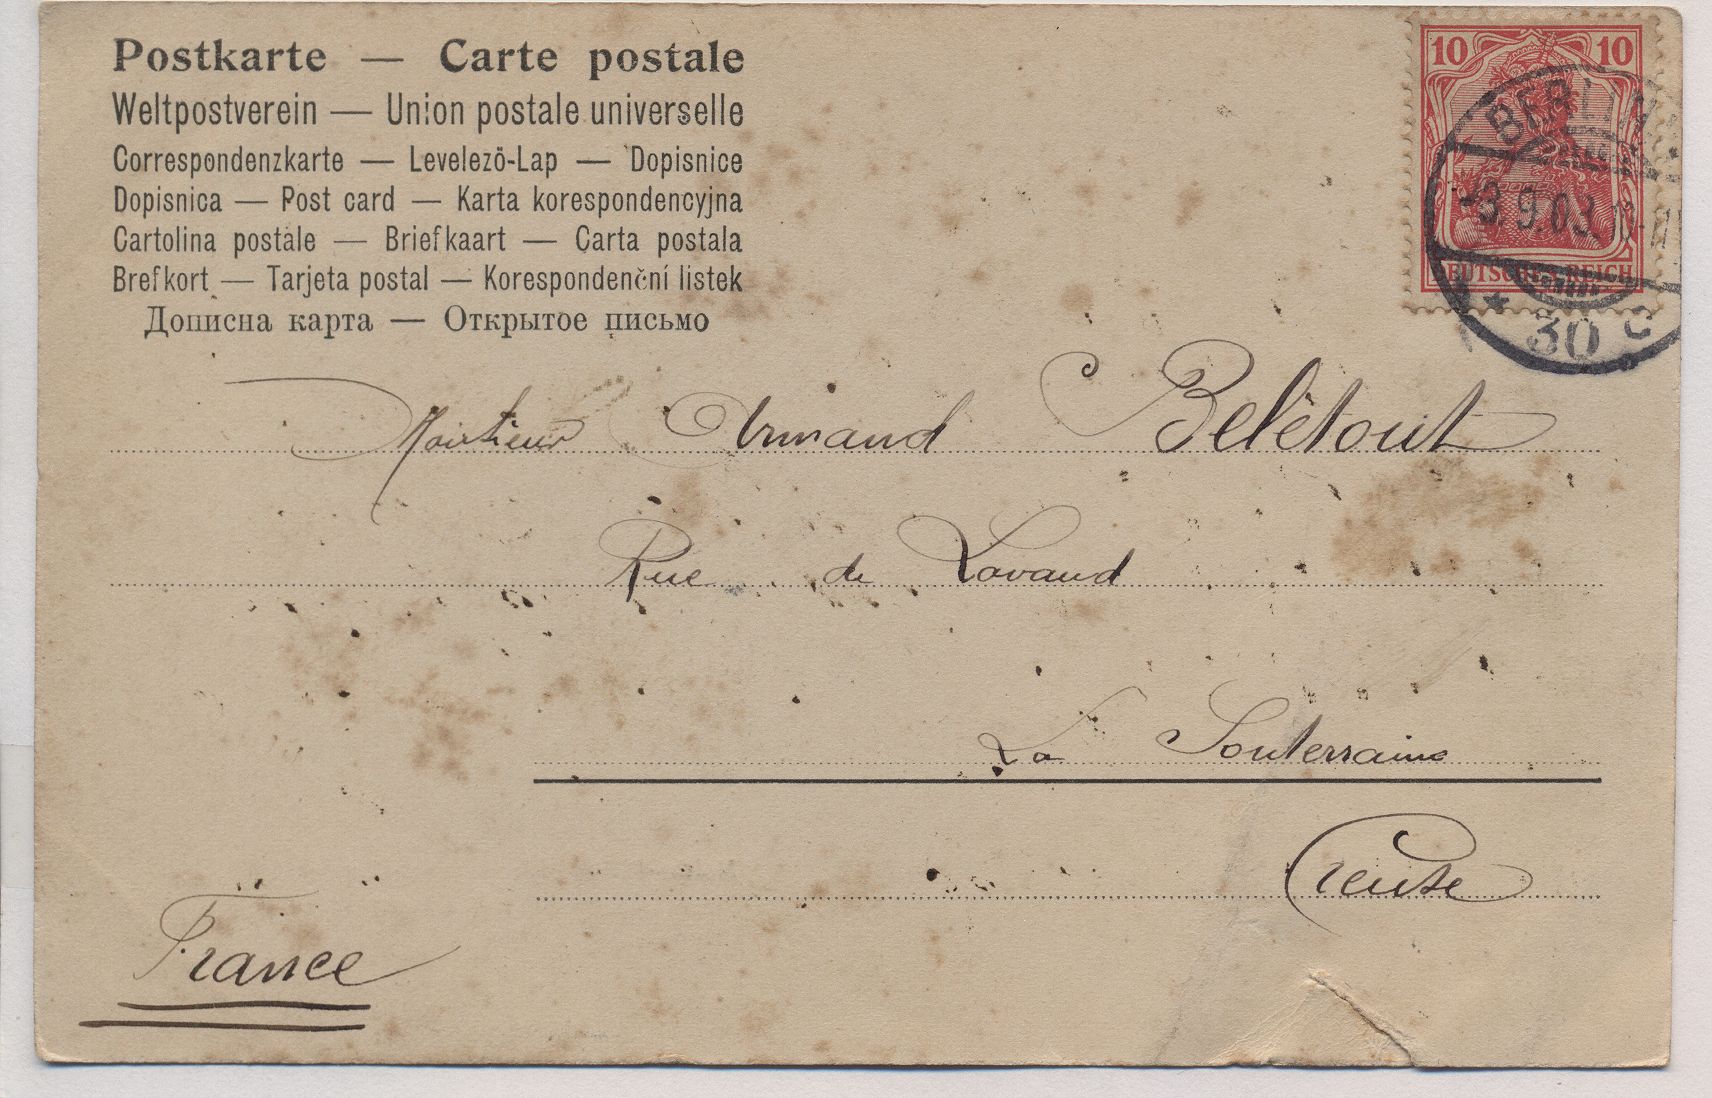 Postkarte — Carte postale
Weltpostverein — Union postale universelle
Correspondenzkarte — Levelezö-Lap — Dopisnice
Dopisnica — Post card — Karta korespondencyjna
Cartolina postale — Briefkaart — Carta postala
Brefkort — Tarjeta postal — Korespondenční listek
Дописна карта — Открытое письмо
10 10
DEUTSCHES REICH
BERLIN
-3.9.03.
* 30 c
Monsieur Armand Belétout
Rue de Lavaud
La Souterraine
Creuse
France